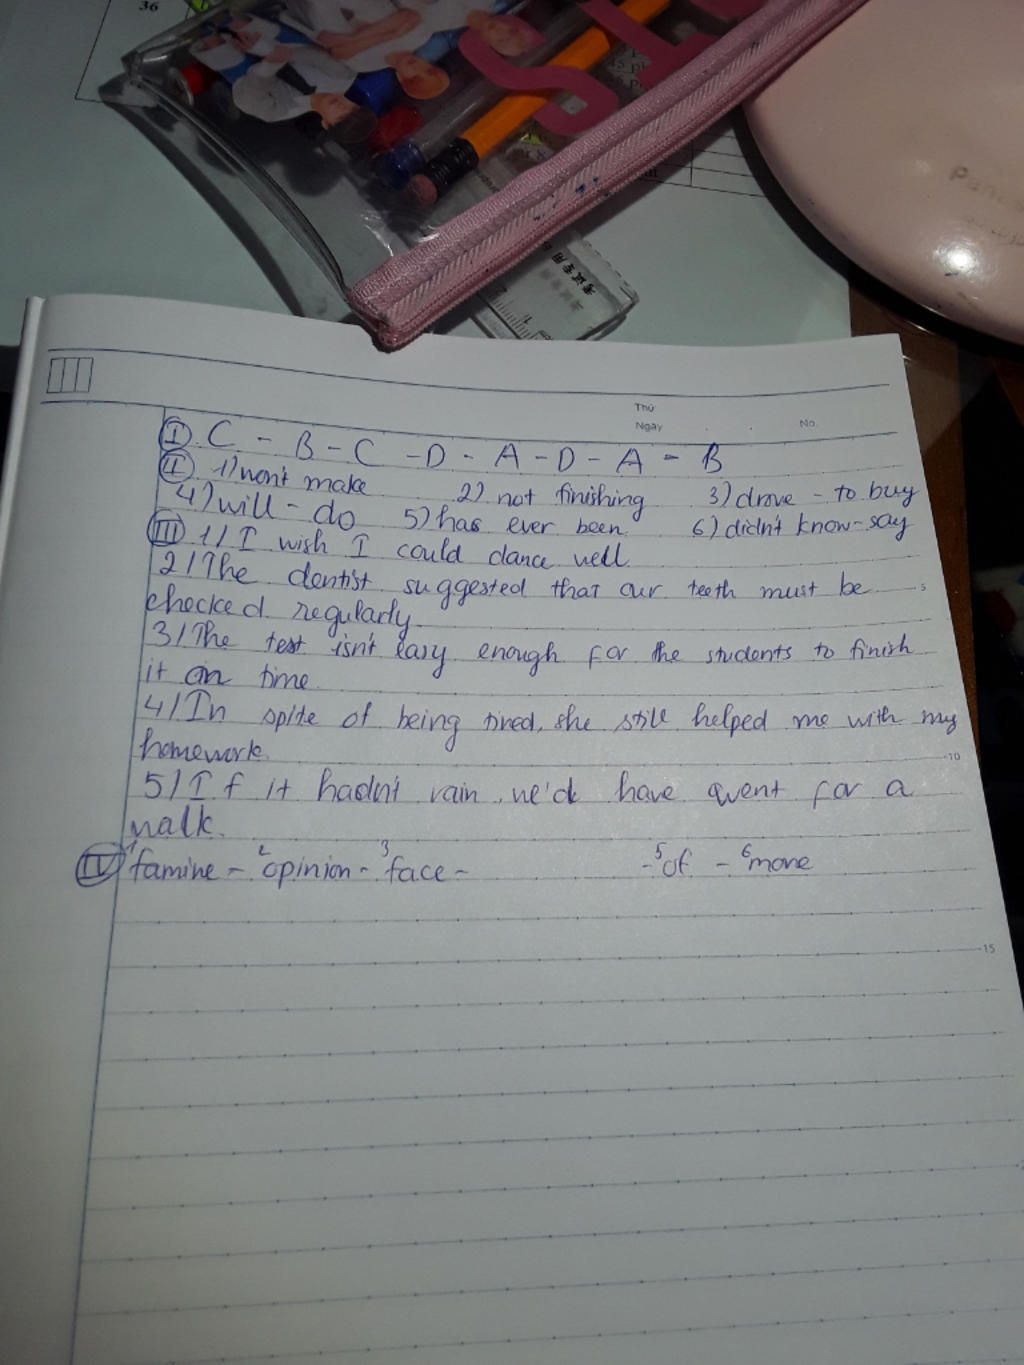 36
Thứ
Ngày . . No.
I. C - B - C - D - A - D - A - B
II 1) won't make 2) not finishing 3) drove - to buy
4) will - do 5) has ever been 6) didn't know - say
III 1/ I wish I could dance well
2/ The dentist suggested that our teeth must be 5
checked regularly
3/ The test isn't easy enough for the students to finish
it on time
4/ In spite of being tired, she still helped me with my
homework. 10
5/ If it hadn't rain, we'd have went for a
walk.
IV 1 famine - 2 opinion - 3 face - - 5 of - 6 more
15